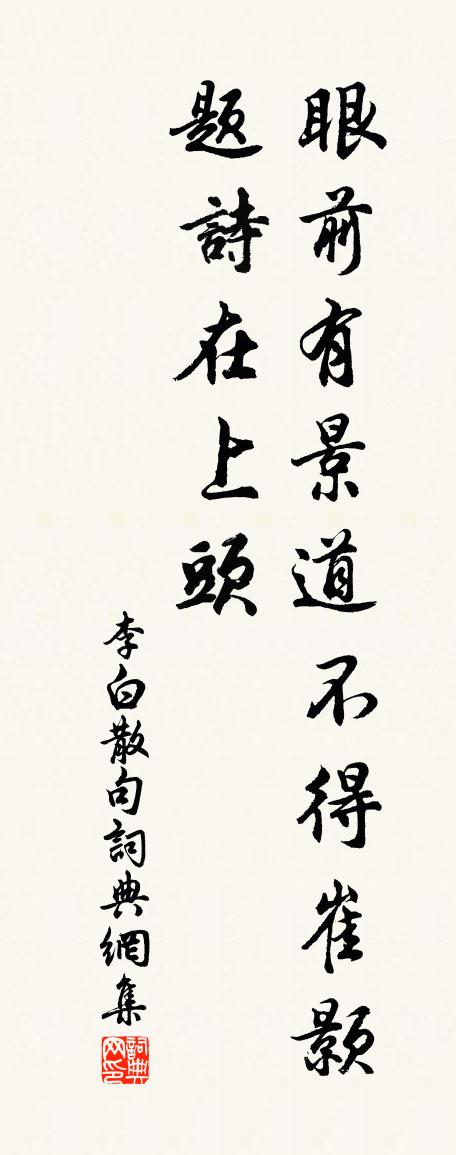 眼前有景道不得崔顥
題詩在上頭
李白散句詞典網集
詞典
网印